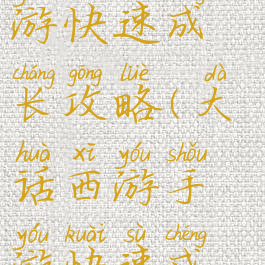 游快速成
cháng gōng lüè dà
长攻略(大
huà xī yóu shǒu
话西游手
yóu kuài sù chéng
游快速成